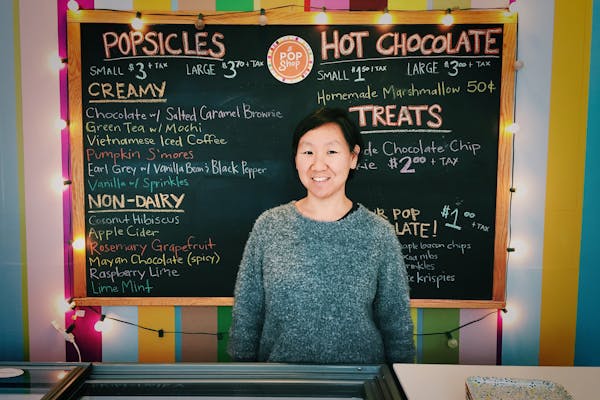 POPSICLES
SMALL $3 + TAX LARGE $3 70 + TAX
CREAMY
Chocolate w/ Salted Caramel Brownie
Green Tea w/ Mochi
Vietnamese Iced Coffee
Pumpkin S'mores
Earl Grey w/ Vanilla Bean & Black Pepper
Vanilla w/ Sprinkles
NON-DAIRY
Coconut Hibiscus
Apple Cider
Rosemary Grapefruit
Mayan Chocolate (spicy)
Raspberry Lime
Lime Mint
POP
Shop
HOT CHOCOLATE
SMALL $1 50 + TAX LARGE $3 00 + TAX
Homemade Marshmallow 50¢
TREATS
de Chocolate Chip
ie $2.00 + TAX
R POP $1 00 + TAX
LATE!
ple bacon chips
oa nibs
rinkles
e krispies